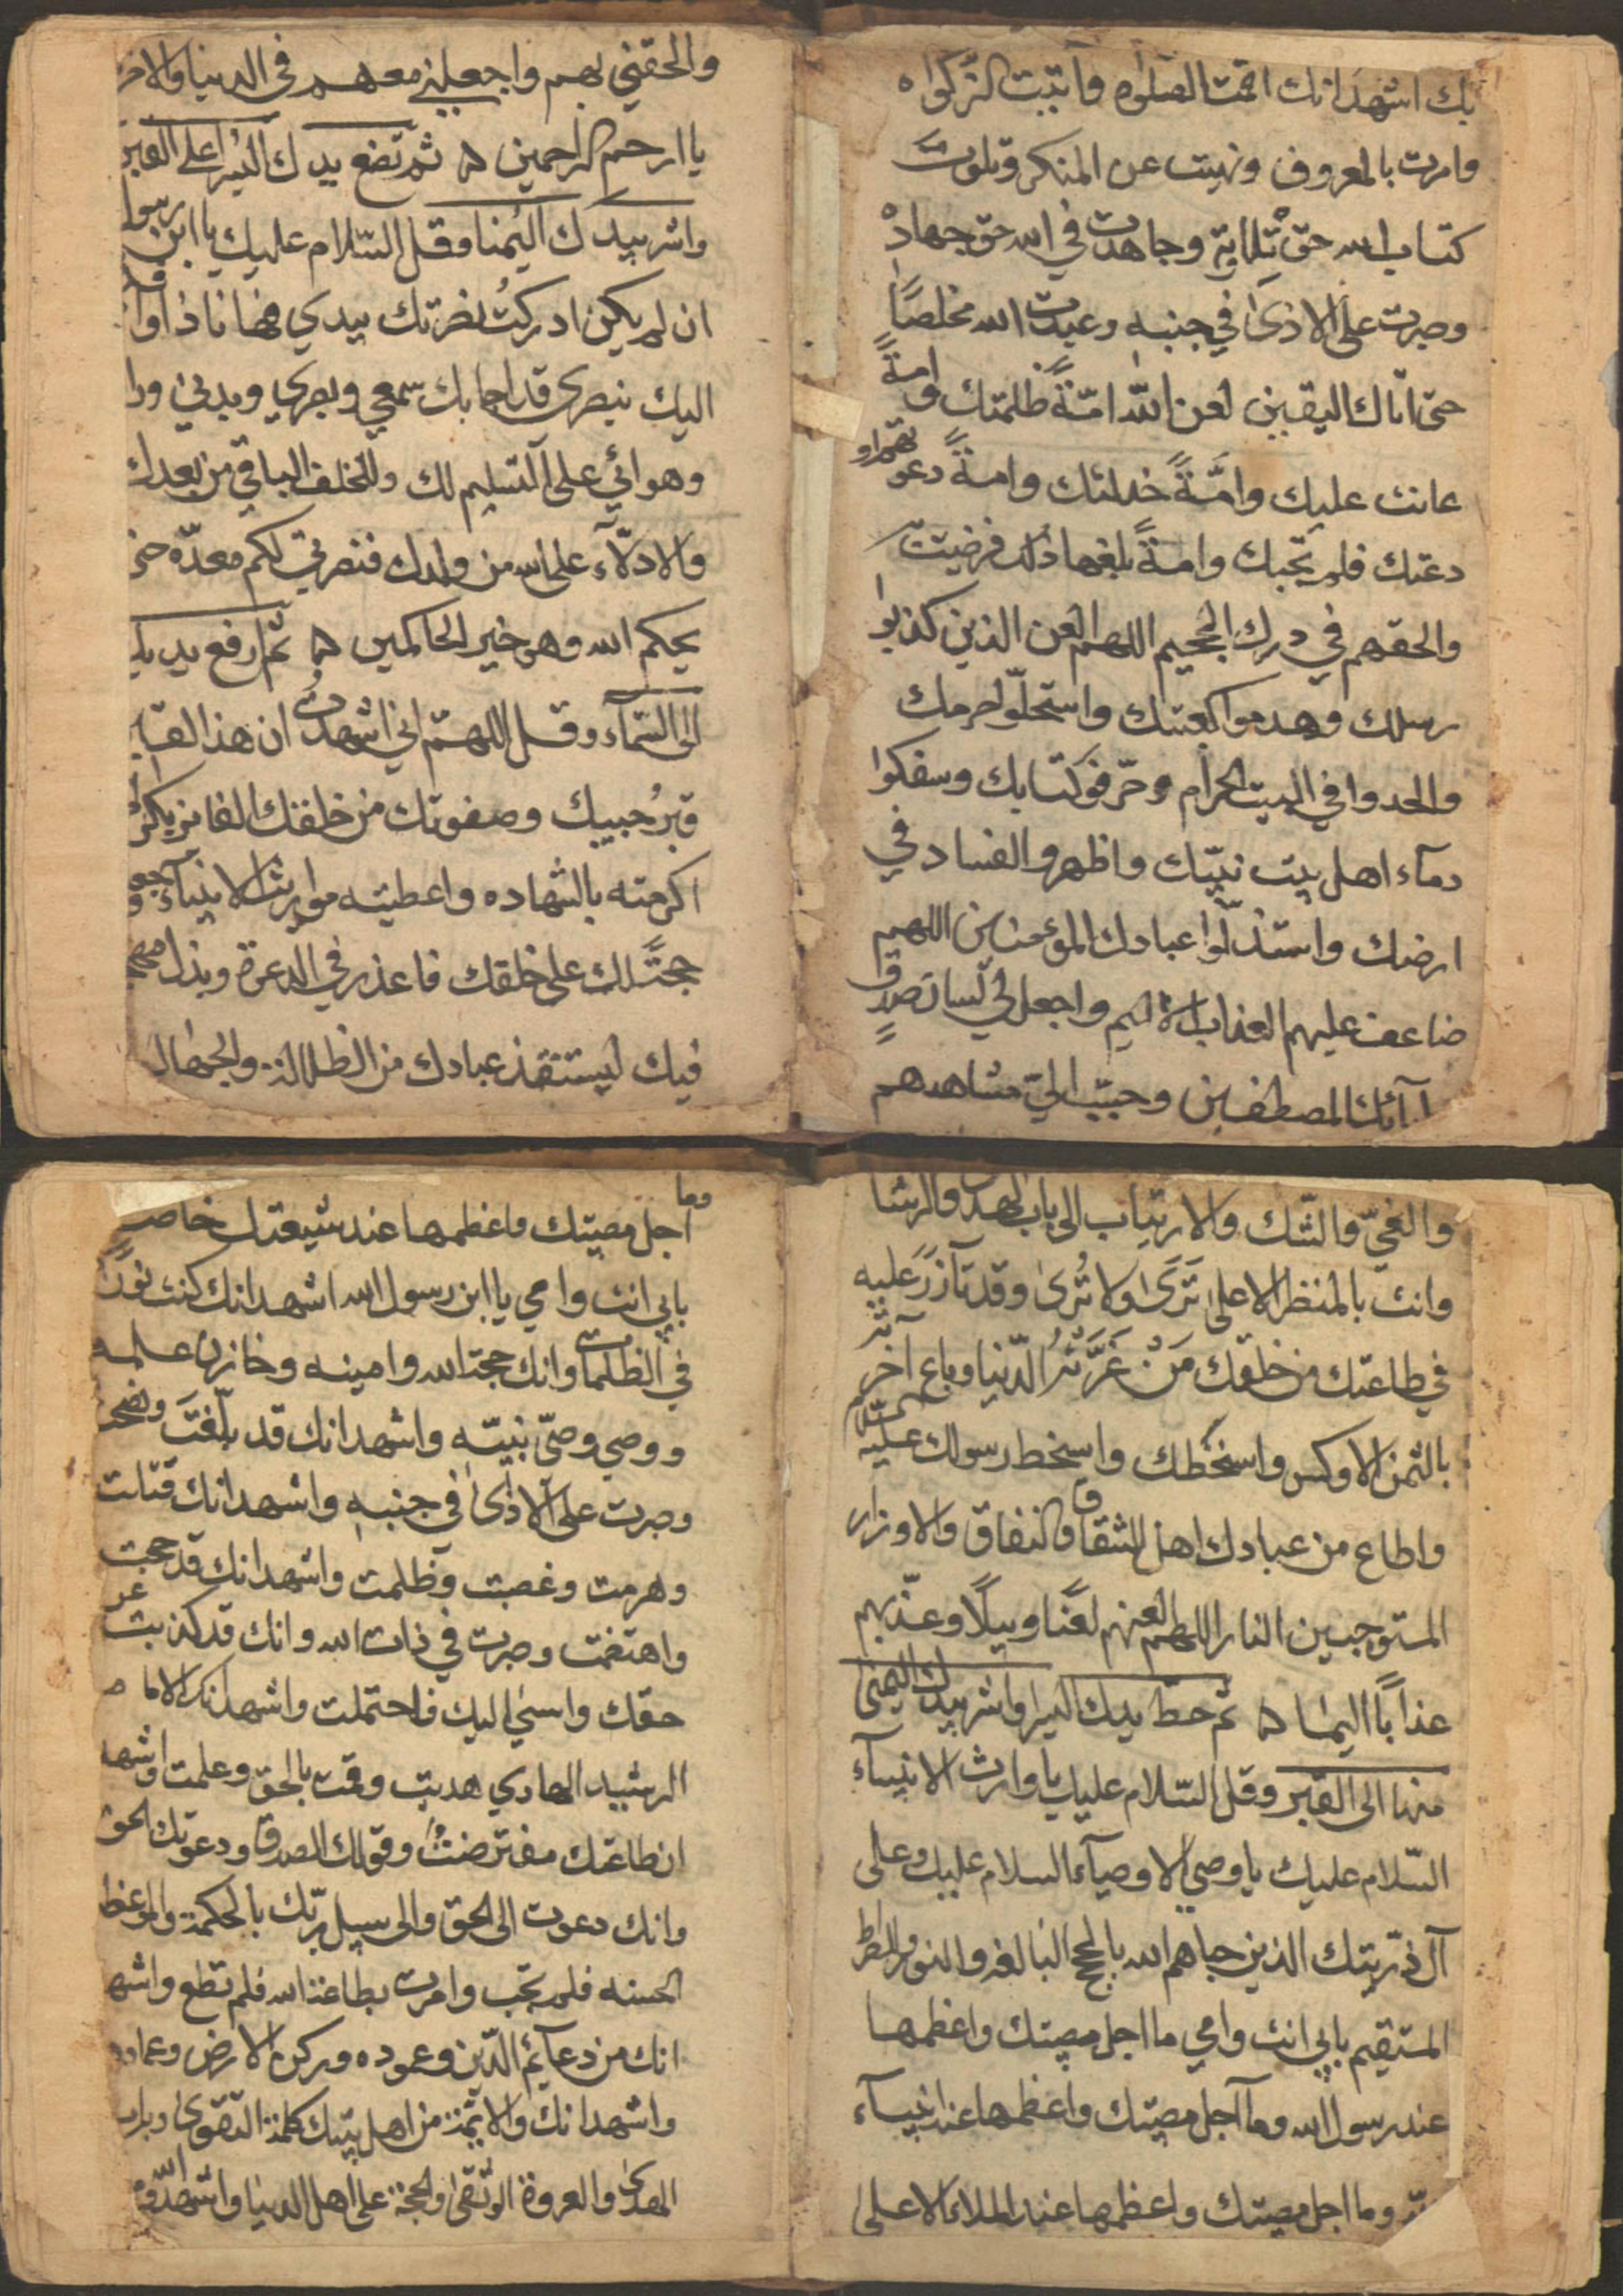 بك اشهد انك اقمت الصلوٰه وآتيت الزكواه
وامرت بالمعروف ونهيت عن المنكر وتلوت
كتاب الله حق تلاوته وجاهدت في الله حق جهاده
وصبرت على الاذىٰ في جنبه وعبدت الله مخلصًا
حتى اتاك اليقين لعن اللّٰه امّةً ظلمتك وامةً
عانت عليك وامّةً خذلتك وامةً دعو
دعتك فلم تجبك وامةً بلغها ذلك فرضيت
والحقهم في درك الجحيم اللهم العن الذين كذبوا
رسلك وهدموا كعبتك واستحلّوا حرمك
والحدوا في البيت الحرام وحرّفو كتابك وسفكوا
دمآء اهل بيت نبيّك واظهرو الفساد في
ارضك واستذلّوا عبادك المؤمنين اللهم
ضاعف عليهم العذاب الاليم واجعل لي لسان صدقٍ
آبائك المصطفين وحبّب اليّ مشاهدهم
والحقني بهم واجعلني معهم في الدنيا والاخر
يا ارحم الراحمين ثم تضع يدك اليسرا على القبر
واشر بيدك اليمنا وقل السّلام عليك يا ابن رسول
ان لم يكن ادركتُ نصرتك بيدي فها انا ذا وا
اليك بنصري قد اجابك سمعي وبصري وبدني ورا
وهوائي على التسليم لك وللخلف الباقي من بعدك
والادلّآء على الله من ولدك فنصرتي لكم معدّه حتى
يحكم الله وهو خير الحاكمين ثم ارفع يديك
الى السّمآء وقل اللهمّ اني اشهد ان هذا القبر
قبرُ حبيبك وصفوتك من خلقك الفائز بكر
اكرمته بالشهاده واعطيته مواريث الانبيآء وجعـ
حجتًّ لك على خلقك فاعذر في الدعوة وبذل مهجـ
فيك ليستنقذ عبادك من الظلالة والجهال
والغيّ والشّك والارتياب الى باب الهدى والرشا
وانت بالمنظر الاعلىٰ تَرَىٰ ولا تُرىٰ وقد تآزَرَ عليه
في طاعتك من خلقك مَنْ غَرَّتْهُ الدّنيا وباع آخرتـ
بالثمن الاوكس واسخطك واسخط رسولك عليه السّلام
واطاع من عبادك اهل الشقاق والنفاق والاوزار
المستوجبين النار اللهم العنهم لعنًا وبيلًا وعذّبهم
عذابًا اليما ثم حطّ يدك اليسرا واشر بيدك اليمنىٰ
منها الى القبر وقل السّلام عليك يا وارث الانبيآء
السّلام عليك يا وصي الاوصيآء السلام عليك وعلى
آل ذرّيتك الذين حباهم الله بالحجج البالغه والنور والصراط
المستقيم بابي انت وامي ما اجل مصيبتك واعظمها
عند رسول الله ومآ اجل مصيبتك واعظمها عند انبيآء
وما اجل مصيبتك واعظمها عند الملاء الاعلىٰ
وما اجل مصيبتك واعظمها عند شيعتك خاصه
بابي انت وامي يا ابن رسول الله اشهد انك كنت نورًا
في الظلمات وانك حجة الله وامينه وخازن علمه
ووصي وصيّ نبيّه واشهد انك قد بلّغتَ ونصحت
وصبرت على الاذىٰ في جنبه واشهد انك قتلت
وهرمت وغصبت وظلمت واشهد انك قد جحبت
واهتضمت وصبرت في ذات الله وانك قد كذبت عن
حقك واسئي اليك فاحتملت واشهد انك الاما م
الرشيد الهادي هديت وقمت بالحق وعلمت واشهد
ان طاعتك مفترضتُ وقولك الصدق ودعوتك الحق
وانك دعوت الى الحق والى سبيل ربّك بالحكمة والموعظ
الحسنه فلم تجب وامرت بطاعة الله فلم تطع واشهد
انك من دعآئم الدّين وعموده وركن الارض وعماد
واشهد انك والائمة من اهل بيتك كلمة التقوىٰ وباب
الهدىٰ والعروة الوثقىٰ والحجة على اهل الدنيا واشهد الله